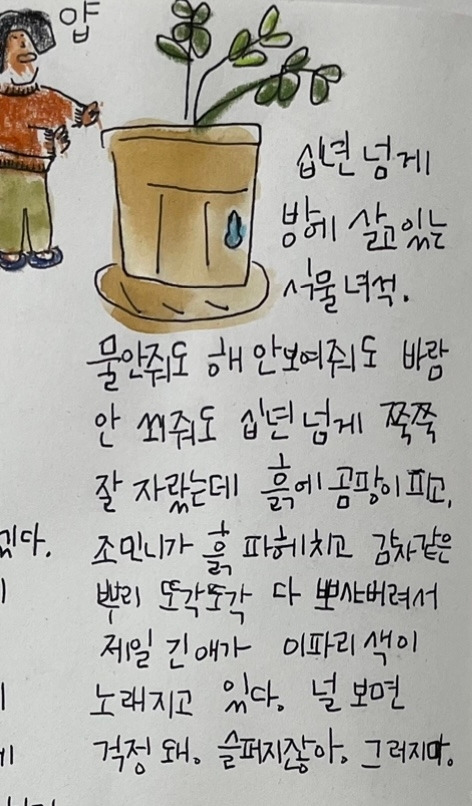 얍
십년 넘게
방에 살고 있는
식물 녀석.
물안줘도 해 안보여줘도 바람
안 쐬줘도 십년 넘게 쭉쭉
잘 자랐는데 흙에 곰팡이 피고,
조민니가 흙 파헤치고 감자같은
뿌리 또각또각 다 뽀사버려서
제일 긴 애가 이파리 색이
노래지고 있다. 널 보면
걱정 돼. 슬퍼지잖아. 그러지마.